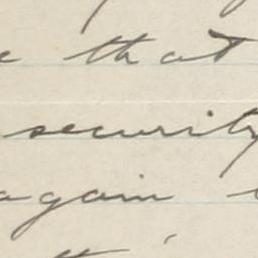 that
security
again